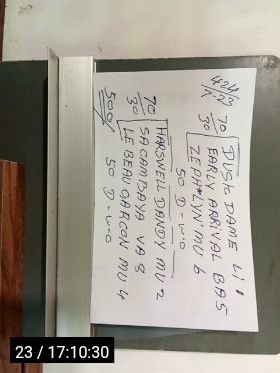 DUSK DAME LI 1
70
30 EARLY ARRIVAL BAS
ZEPH*LYN' MU 6
50 D - W-O
HARSWELL DANDY MU 2
70
30 SACAMBAYA VA 8
500/ LE BEAU GARCON MU 4
50 D - W-O
23 / 17:10:30